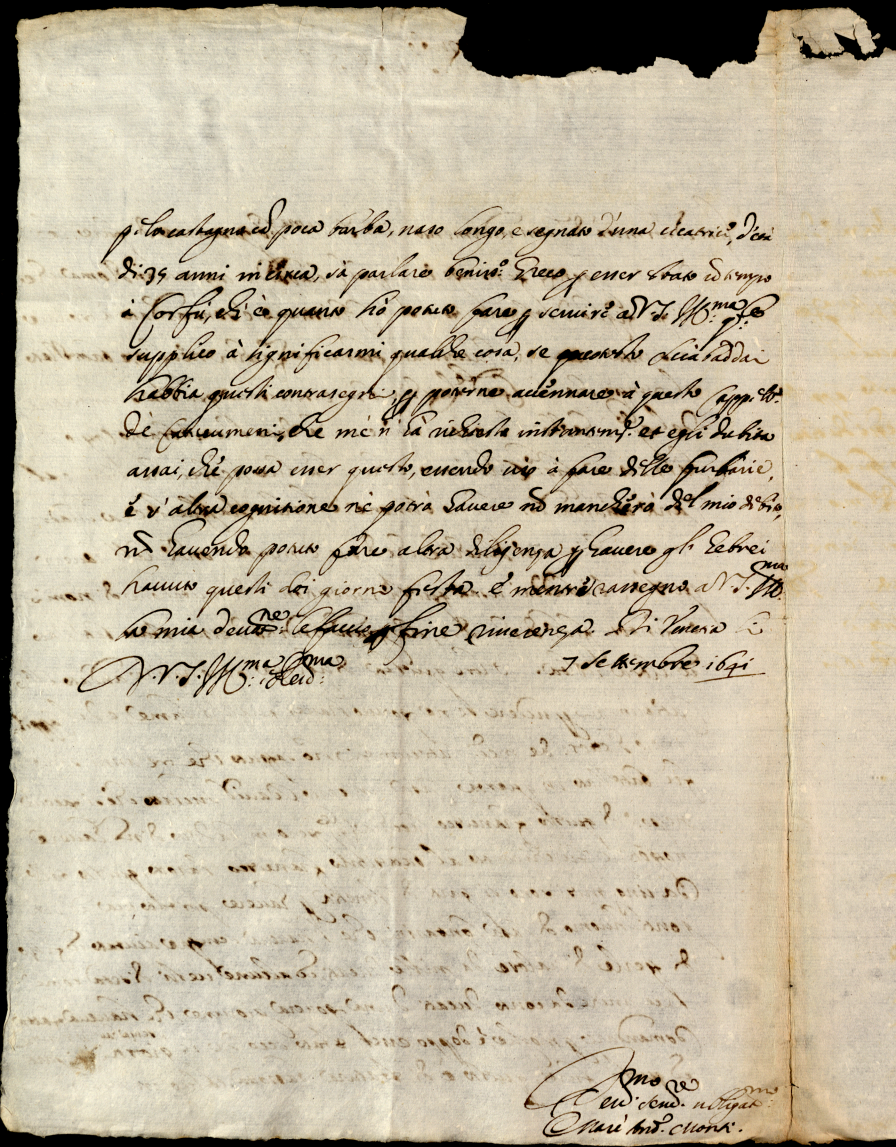 pelo castagna cō poca barba, naso longo, e segnato d'una cicatrice, d'età
di 35 anni in circa, sà parlare beniss.o Greco p esser stato un tempo
à Corfù, ch'è quanto hò potuto fare p servire à V.S. Ill.ma
supplico à significarmi qualche cosa, se questo Sciabaddai
habbia questi contrasegni, p poterne accennare à questo
de Catecumeni, che me n'hà richiesto et egli dubita
assai, che possa esser questo, essendo uso à fare delle furbarie,
e s'altra cognitione ne potrà havere nō mancherà del mio debito,
nō havendo potuto fare altra diligenza p havere gl'hebrei
havuto questi doi giorni festa e mentre rassegno à V.S. Ill.ma
la mia le faccio p fine riverenza. Di Venetia li
7 Settembre 1641
D V.S. Ill.ma e Rev.ma
Dev.mo serv.re obligat.mo
Marc' Ant.o